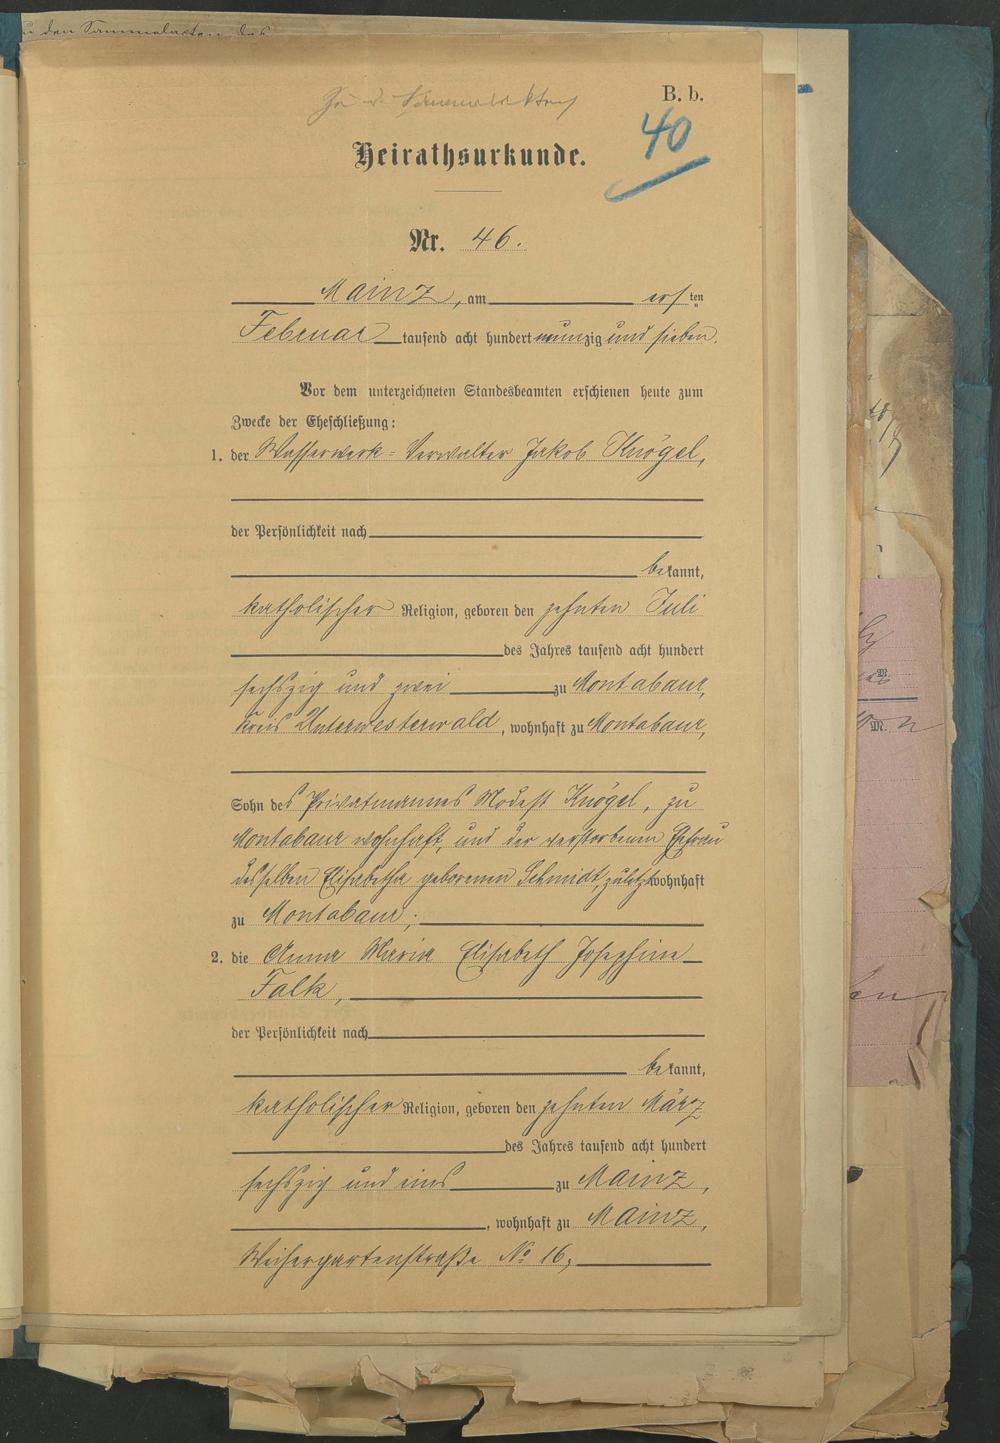 zu den Sammelakten des
Zu d. Sammelakten
B. b.
40
Heirathsurkunde.
Nr. 46.
Mainz, am ersten
Februar tausend acht hundert neunzig und sieben.
Vor dem unterzeichneten Standesbeamten erschienen heute zum
Zwecke der Eheschließung:
1. der Wasserwerk-Verwalter Jakob Knögel,
der Persönlichkeit nach
bekannt,
katholischer Religion, geboren den zehnten Juli
des Jahres tausend acht hundert
sechszig und zwei zu Montabaur,
Kreis Unterwesterwald, wohnhaft zu Montabaur,
Sohn des Privatmannes Modest Knögel, zu
Montabaur wohnhaft, und der verstorbenen Ehefrau
desselben Elisabetha geborenen Schmidt, zuletzt wohnhaft
zu Montabaur;
2. die Anna Maria Elisabeth Josephine
Falk,
der Persönlichkeit nach
bekannt,
katholischer Religion, geboren den zehnten März
des Jahres tausend acht hundert
sechszig und eins zu Mainz,
, wohnhaft zu Mainz,
Weihergartenstraße No 16,